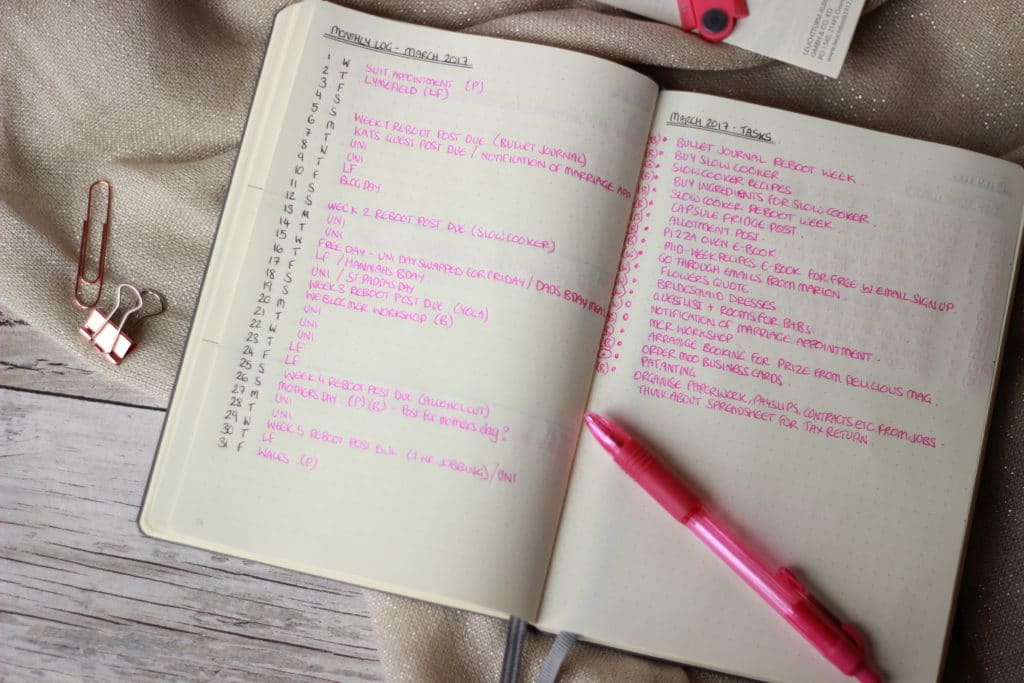 MONTHLY LOG - MARCH 2017
1 W SUIT APPOINTMENT (P)
2 T LYMEFIELD (LF)
3 F
4 S
5 S WEEK 1 REBOOT POST DUE (BULLET JOURNAL)
6 M KATS GUEST POST DUE / NOTIFICATION OF MARRIAGE APP
7 T UNI
8 W UNI
9 T LF
10 F BLOG DAY
11 S
12 S WEEK 2 REBOOT POST DUE (SLOW COOKER)
13 M UNI
14 T UNI
15 W FREE DAY - UNI DAY SWAPPED FOR FRIDAY / DADS BDAY MEAL
16 T LF / HANNAHS BDAY
17 F UNI / ST PADDYS DAY
18 S WEEK 3 REBOOT POST DUE (YOGA)
19 S WEBLOGMCR WORKSHOP (B)
20 M UNI
21 T UNI
22 W UNI
23 T LF
24 F LF
25 S WEEK 4 REBOOT POST DUE (ALCOHOL CUT)
26 S MOTHERS DAY (P)(B) - POST FOR MOTHERS DAY?
27 M UNI
28 T UNI
29 W WEEK 5 REBOOT POST DUE (1 HR JOBBING) / UNI
30 T LF
31 F WALES (P)
MARCH 2017 - TASKS
(B)• BULLET JOURNAL REBOOT WEEK.
(B)• BUY SLOW COOKER
(B)• SLOWCOOKER RECIPES
(B)• BUY INGREDIENTS FOR SLOW COOKER
(B)• SLOW COOKER REBOOT WEEK.
(B)• CAPSULE FRIDGE POST.
• ALLOTMENT POST.
• PIZZA OVEN E-BOOK
• MID-WEEK RECIPES E-BOOK FOR FREE W EMAIL SIGN UP
• GO THROUGH EMAILS FROM MARION
• FLOWERS QUOTE
• BRIDESMAID DRESSES
• GUEST LIST + ROOMS FOR B+BS.
• NOTIFICATION OF MARRIAGE APPOINTMENT.
• MCR WORKSHOP
• ARRANGE BOOKING FOR PRIZE FROM DELICIOUS MAG.
• ORDER MOO BUSINESS CARDS.
• PAT ANTING
• ORGANISE PAPERWORK, PAYSLIPS, CONTRACTS ETC FROM JOBS.
• THINK ABOUT SPREADSHEET FOR TAX RETURN
LEUCHTTURM ALBUM
GMBH & CO. KG
PO 1340, 21495